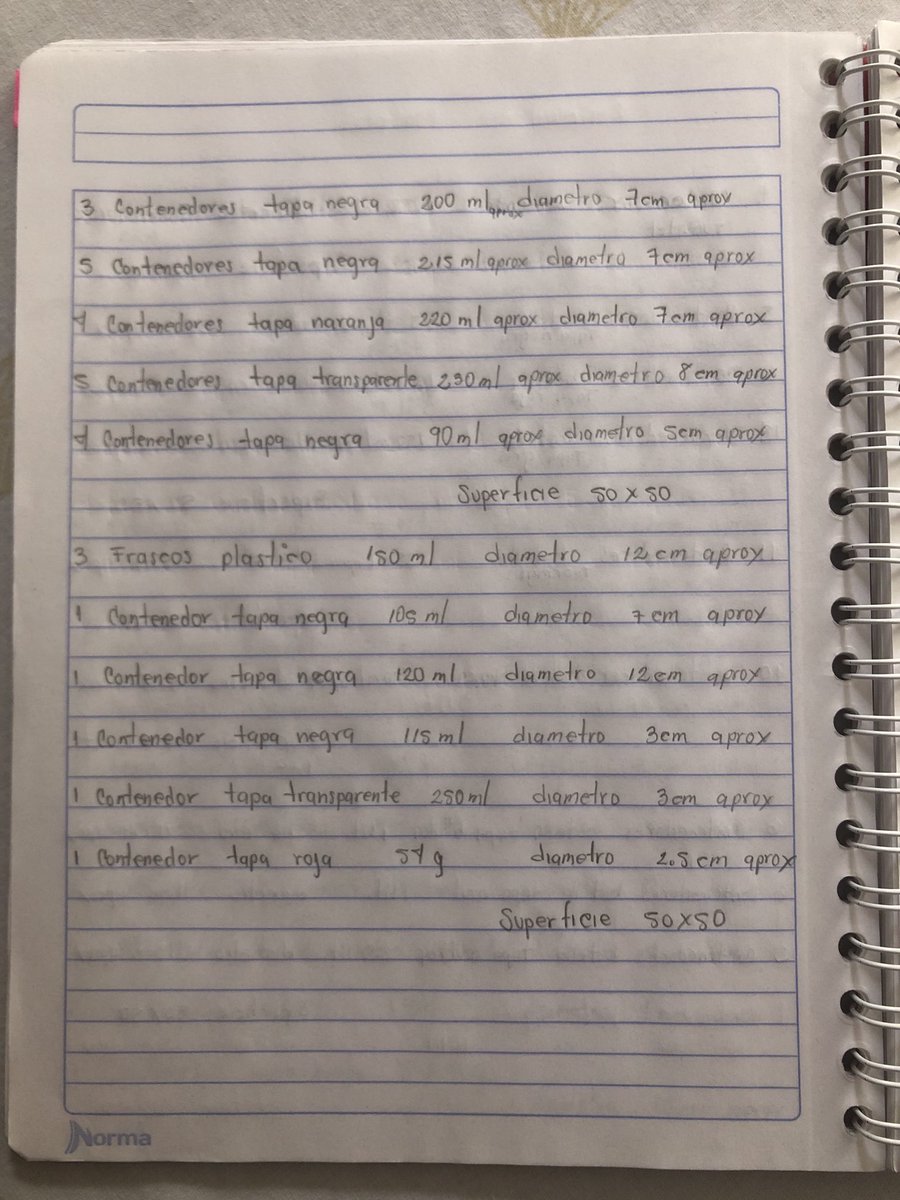 3 Contenedores tapa negra 200 ml aprox diametro 7cm aprox
5 Contenedores tapa negra 215 ml aprox diametro 7cm aprox
4 Contenedores tapa naranja 220 ml aprox diametro 7cm aprox
5 Contenedores tapa transparente 230ml aprox diametro 8cm aprox
4 Contenedores tapa negra 90ml aprox diametro 5cm aprox
Superficie 50x50
3 Frascos plastico 150 ml diametro 12cm aprox
1 Contenedor tapa negra 105 ml diametro 7cm aprox
1 Contenedor tapa negra 120 ml diametro 12cm aprox
1 Contenedor tapa negra 115 ml diametro 3cm aprox
1 Contenedor tapa transparente 250ml diametro 3cm aprox
1 Contenedor tapa roja 54 g diametro 2.5cm aprox
Superficie 50x50
Norma